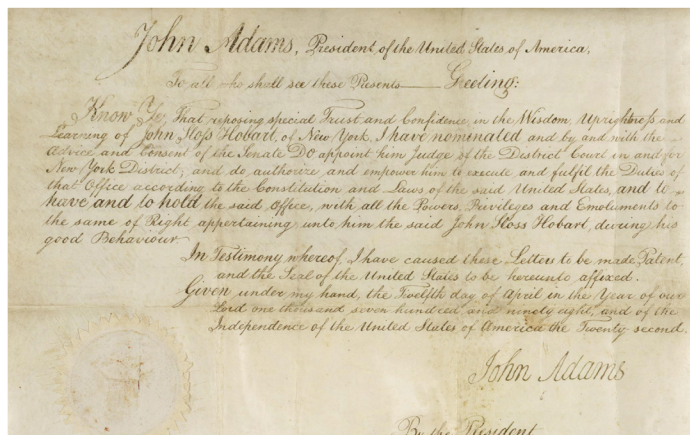 John Adams, President of the United States of America,
To all who shall see these Presents Greeting:
Know Ye, That reposing special Trust and Confidence in the Wisdom, Uprightness and
Learning of John Sloss Hobart, of New York, I have nominated and by and with the
Advice and Consent of the Senate Do appoint him Judge of the District Court in and for
New York District; and do authorize and empower him to execute and fulfil the Duties of
that Office according to the Constitution and Laws of the said United States, and to
have and to hold the said Office, with all the Powers, Privileges and Emoluments to
the same of Right appertaining unto him the said John Sloss Hobart, during his
good Behaviour
In Testimony whereof, I have caused these Letters to be made Patent,
and the Seal of the United States to be hereunto affixed.
Given under my hand, the Twelfth day of April in the Year of our
Lord one thousand seven hundred and ninety eight, and of the
Independence of the United States of America the Twenty second.
John Adams
By the President